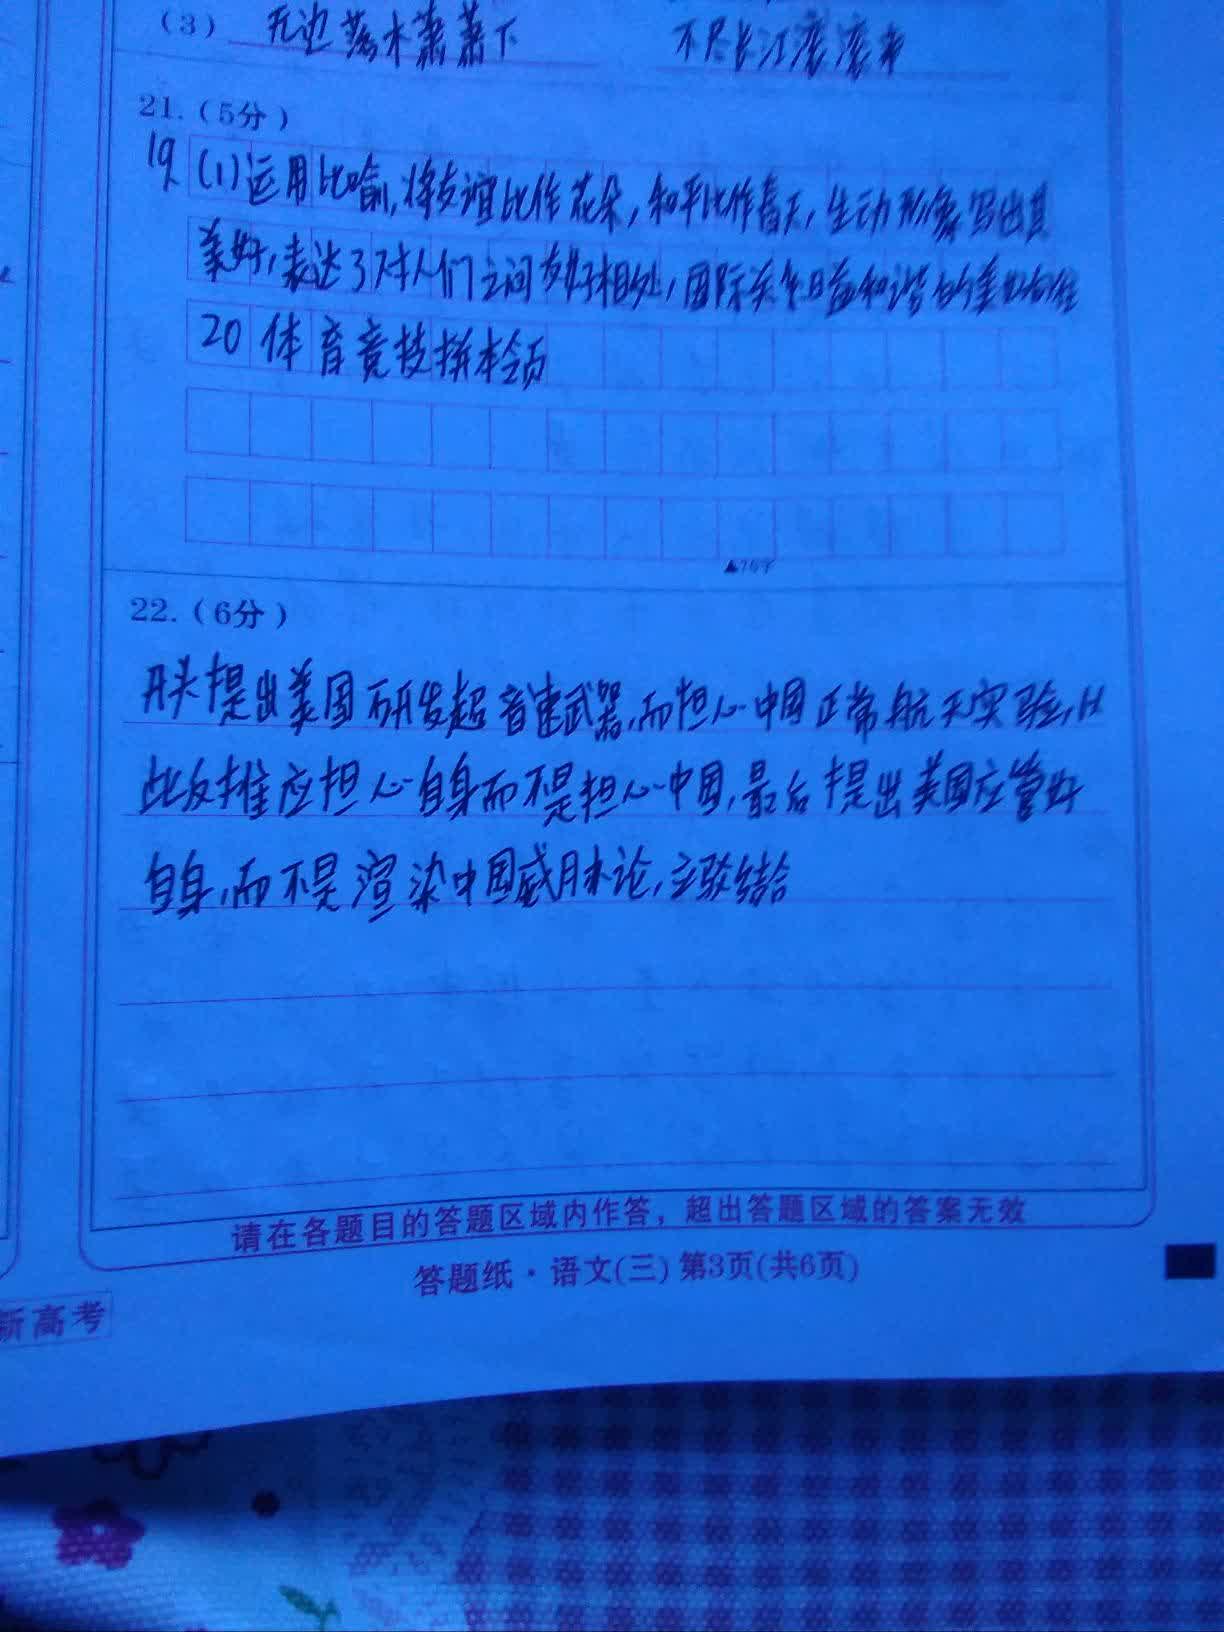 (3) 无边落木萧萧下 不尽长江滚滚来
21.(5分)
19.(1)运用比喻,将友谊比作花朵,和平比作春天,生动形象写出其
美好,表达了对人们之间友好相处,国际关系日益和谐的美好向往
20 体育竞技拼本领
▲75字
22.(6分)
开头提出美国研发超音速武器,而担心中国正常航天实验,以
此反推应担心自身而不是担心中国,最后提出美国应管好
自身,而不是渲染中国威胁论,立驳结合
请在各题目的答题区域内作答,超出答题区域的答案无效
答题纸·语文(三) 第3页(共6页)
新高考